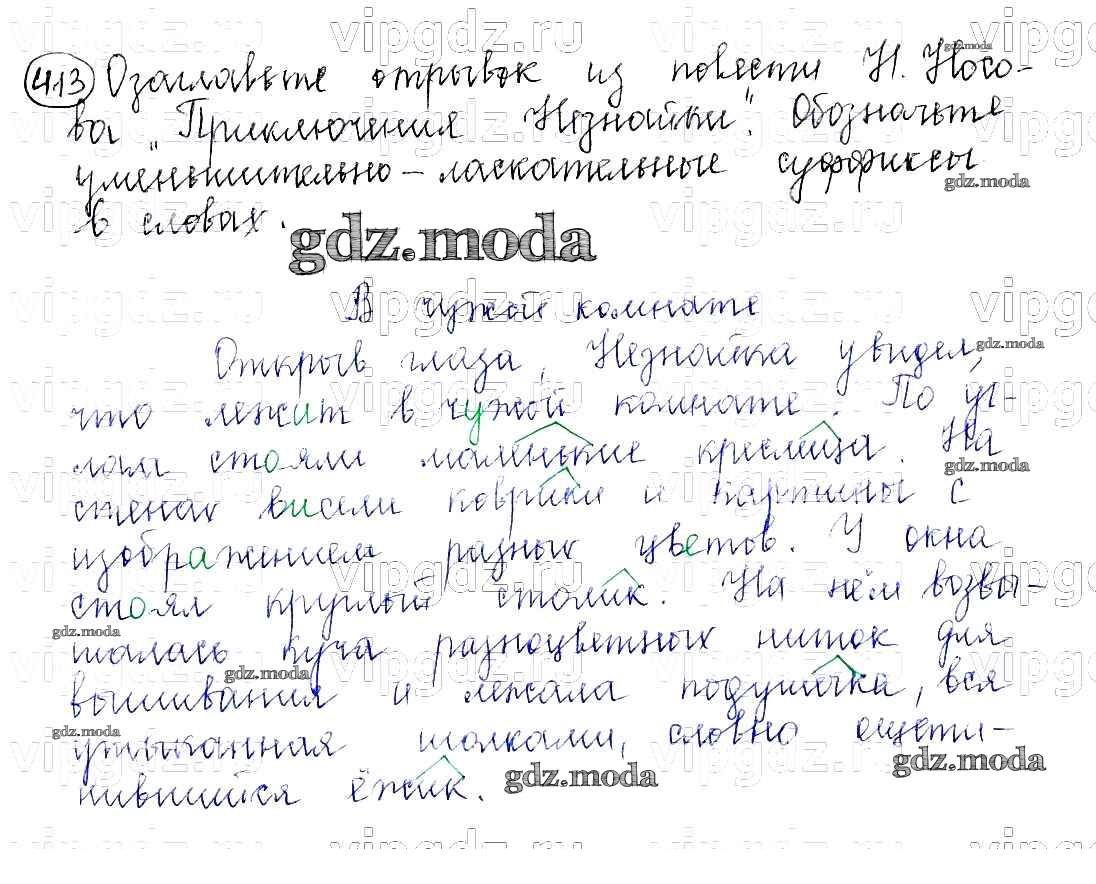 413 Озаглавьте отрывок из повести Н. Носо-
ва "Приключения Незнайки". Обозначьте
уменьшительно-ласкательные суффиксы
в словах.
gdz.moda
В чужой комнате
Открыв глаза, Незнайка увидел,
что лежит в чужой комнате. По уг-
лам стояли маленькие креслица. На
стенах висели коврики и картины с
изображением разных цветов. У окна
стоял круглый столик. На нём возвы-
шалась куча разноцветных ниток для
вышивания и лежала подушечка, вся
утыканная иголками, словно ощети-
нившийся ёжик.
gdz.moda
gdz.moda
vipgdz.ru